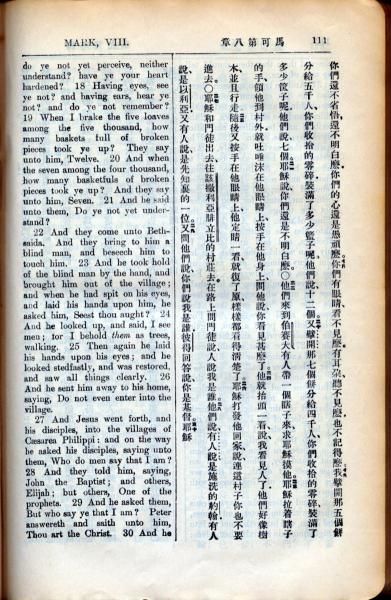 MARK, VIII.
馬可第八章
111
do ye not yet perceive, neither
understand? have ye your heart
hardened? 18 Having eyes, see
ye not? and having ears, hear ye
not? and do ye not remember?
19 When I brake the five loaves
among the five thousand, how
many baskets full of broken
pieces took ye up? They say
unto him, Twelve. 20 And when
the seven among the four thousand,
how many basketfuls of broken
pieces took ye up? And they say
unto him, Seven. 21 And he said
unto them, Do ye not yet under-
stand?
22 And they come unto Beth-
saida. And they bring to him a
blind man, and beseech him to
touch him. 23 And he took hold
of the blind man by the hand, and
brought him out of the village;
and when he had spit on his eyes,
and laid his hands upon him, he
asked him, Seest thou aught? 24
And he looked up, and said, I see
men; for I behold them as trees,
walking. 25 Then again he laid
his hands upon his eyes; and he
looked stedfastly, and was restored,
and saw all things clearly. 26
And he sent him away to his home,
saying, Do not even enter into the
village.
27 And Jesus went forth, and
his disciples, into the villages of
Cæsarea Philippi: and on the way
he asked his disciples, saying unto
them, Who do men say that I am?
28 And they told him, saying,
John the Baptist; and others,
Elijah; but others, One of the
prophets. 29 And he asked them,
But who say ye that I am? Peter
answereth and saith unto him,
Thou art the Christ. 30 And he
你們還不省悟、還不明白麼、你們的心還是愚頑麼、你們有眼睛、看不見麼、有耳朵、聽不見麼、也不記得麼、我擘開那五個餅
分給五千人、你們收拾的零碎、裝滿了多少籃子呢、他們說、十二個、又擘開那七個餅分給四千人、你們收拾的零碎、裝滿了
多少筐子呢、他們說、七個、耶穌說、你們還是不明白麼○他們來到伯賽大、有人帶一個瞎子來、求耶穌摸他、耶穌拉着瞎子
的手、領他到村外、就吐唾沫在他眼睛上、按手在他身上、問他說、你看見甚麼了、他就抬頭一看、說、我看見人了、他們好像樹
木、並且行走、隨後又按手在他眼睛上、他定睛一看、就復了原、樣樣都看得清楚了、耶穌打發他回家、說、連這村子你也不要
進去○耶穌和門徒出去、往該撒利亞腓立比的村莊去、在路上問門徒說、人說我是誰、他們說、有人說是施洗的約翰、有人
說是以利亞、又有人說、是先知裏的一位、又問他們說、你們說我是誰、彼得回答說、你是基督、耶穌